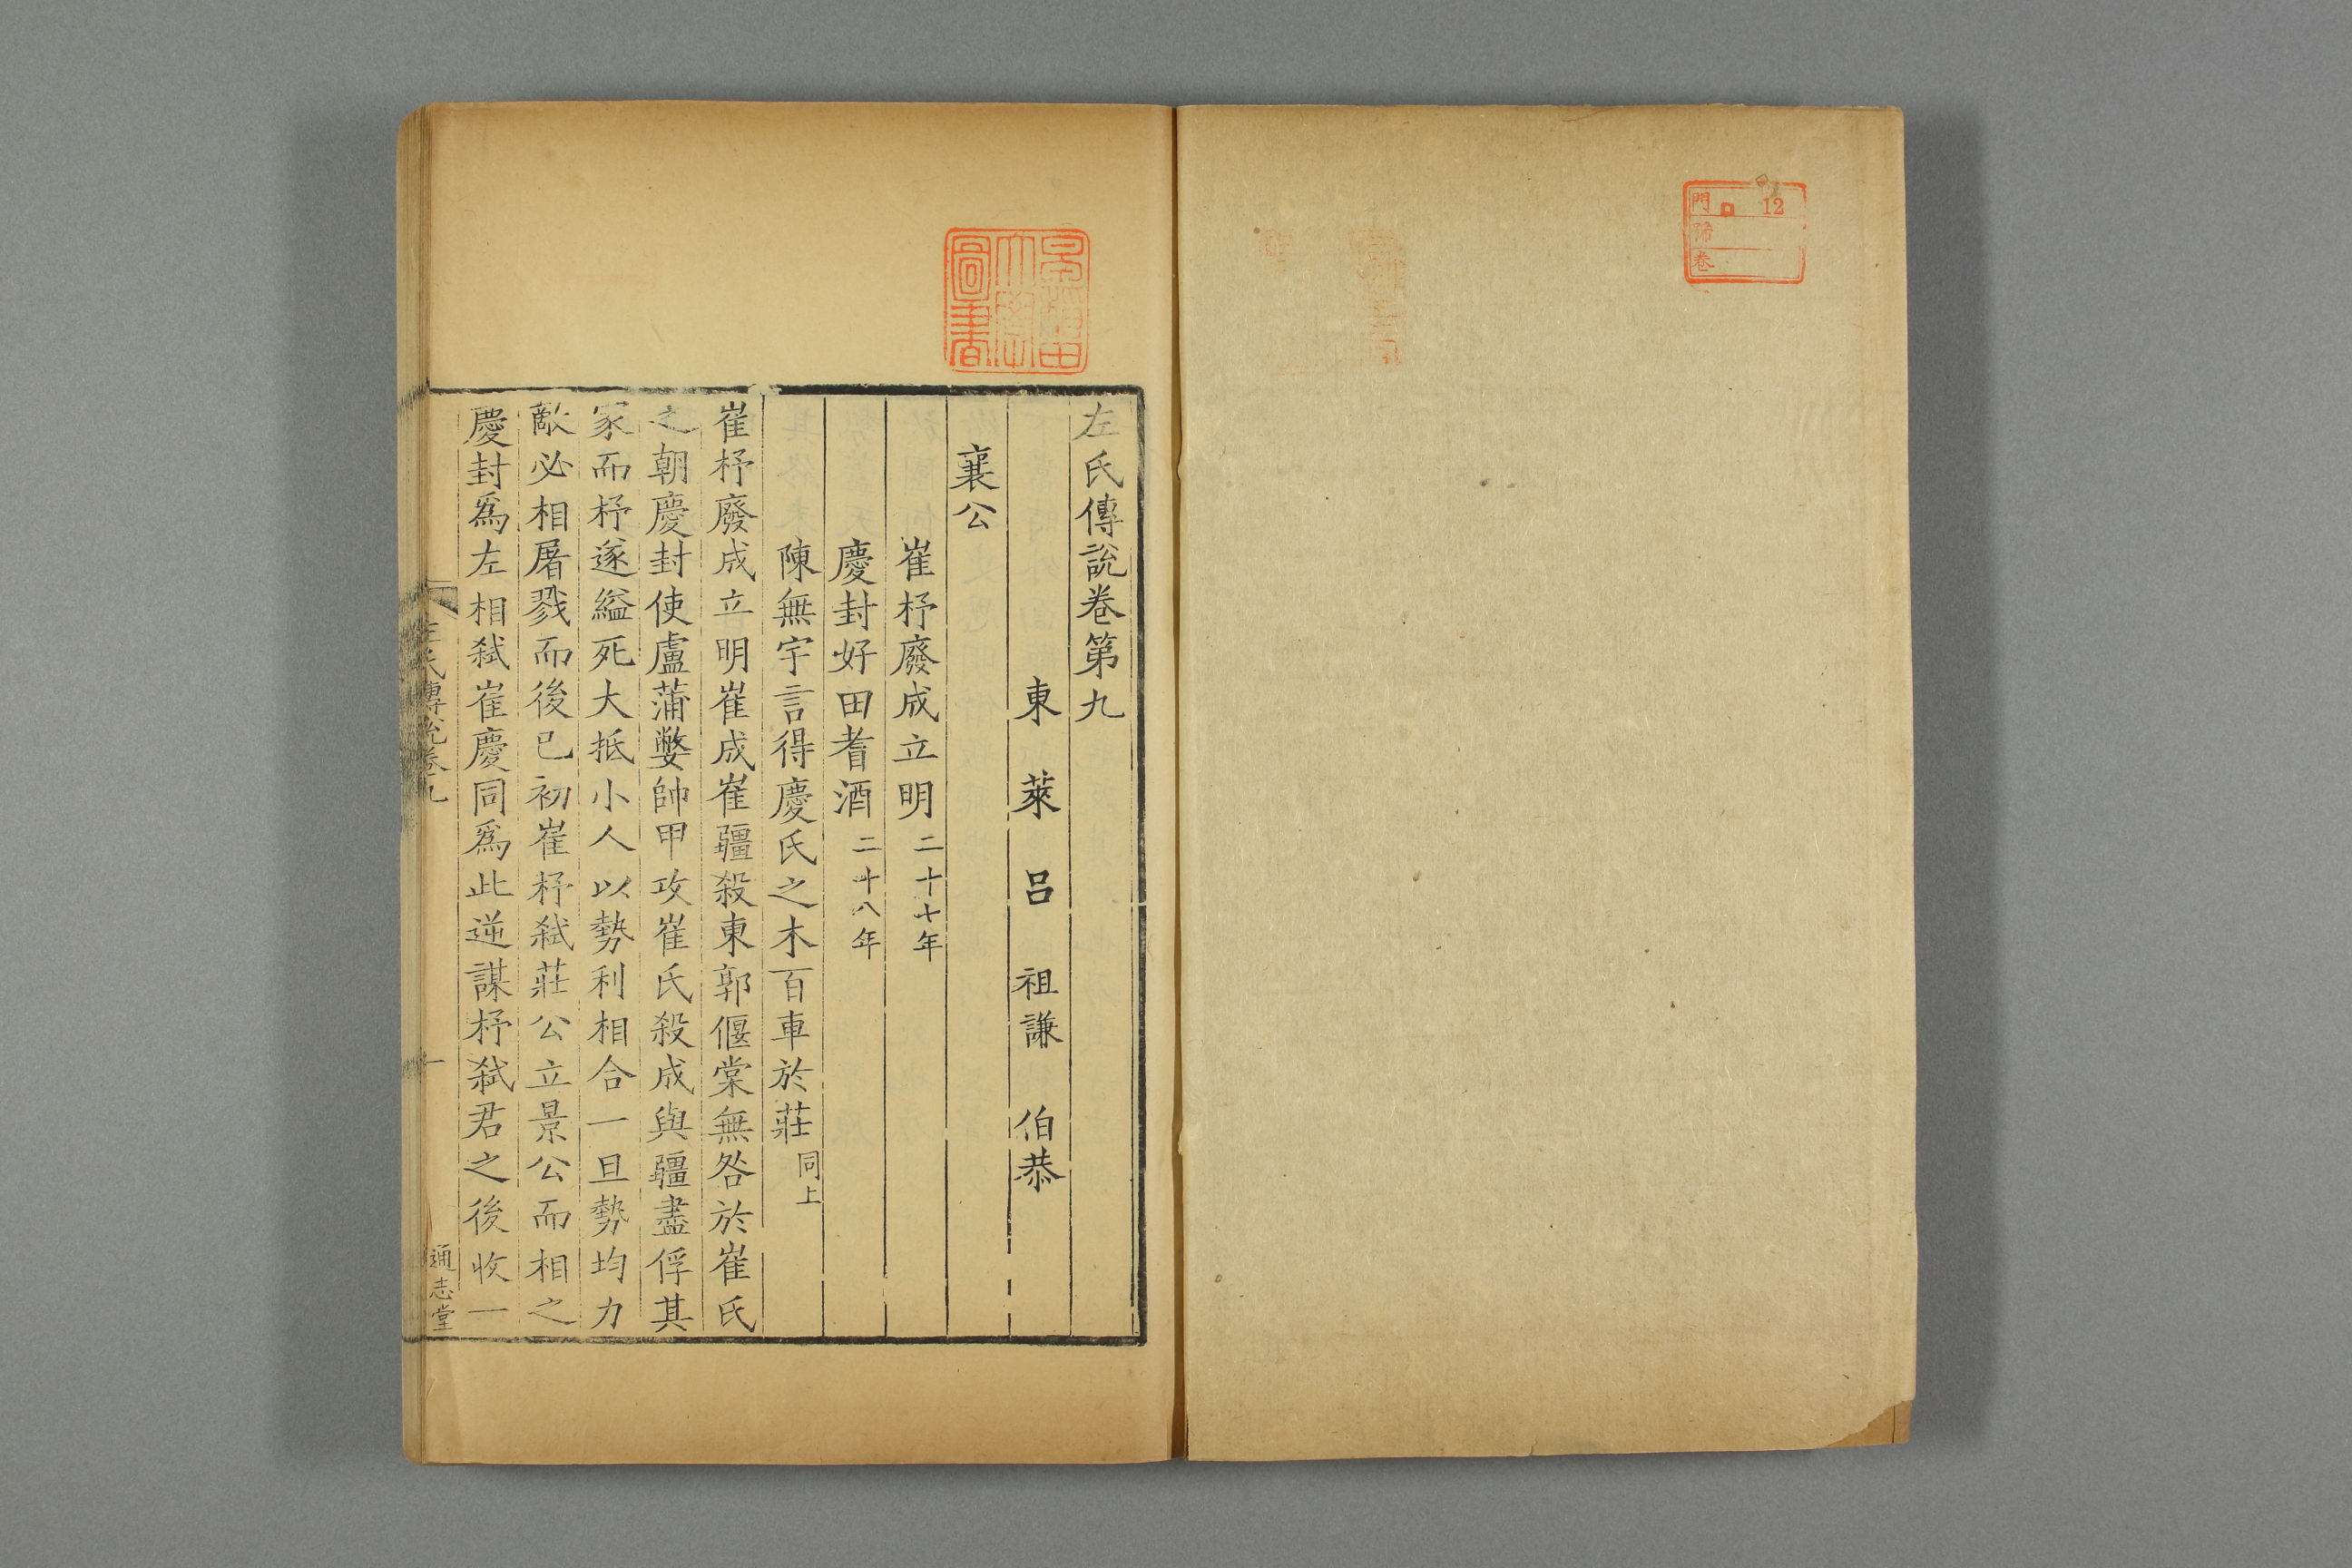 門 12
號
卷
早稲田大學圖書
左氏傳說卷第九
東萊呂祖謙伯恭
襄公
崔杼廢成立明二十七年
慶封好田耆酒二十八年
陳無宇言得慶氏之木百車於莊同上
崔杼廢成立明崔成崔彊殺東郭偃棠無咎於崔氏
之朝慶封使盧蒲嫳帥甲攻崔氏殺成與彊盡俘其
家而杼遂縊死大抵小人以勢利相合一旦勢均力
敵必相屠戮而後已初崔杼弒莊公立景公而相之
慶封爲左相弒崔慶同爲此逆謀杼弒君之後收一
左氏傳說卷九 一 通志堂